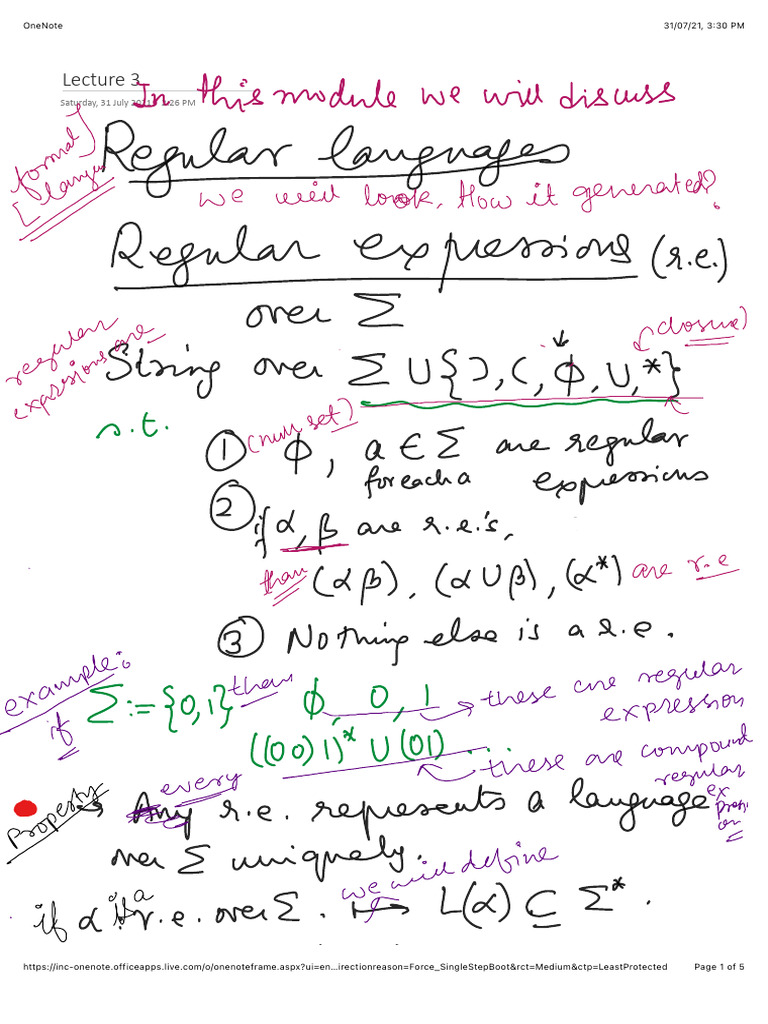 OneNote 31/07/21, 3:30 PM
Lecture 3
In this module we will discuss
Saturday, 31 July 2021 26 PM
[formal langu]
Regular languages
we will look, How it generated?
Regular expressions (r.e.)
over Σ
regular expressions are
String over Σ ∪ {), (, ϕ, ∪, *} (closure)
s.t.
① ϕ (null set), a ∈ Σ are regular
for each a expressions
② if α, β are r.e.'s,
than (αβ), (α∪β), (α*) are r.e
③ Nothing else is a r.e.
example:
if Σ := {0,1} than ϕ, 0, 1 → these are regular expression
((00)1)* ∪ (01) ... these are compound regular expression
Property → every r.e. represents a language
over Σ uniquely.
we will define
if α is a r.e. over Σ. ↦ L(α) ⊆ Σ*.
https://inc-onenote.officeapps.live.com/o/onenoteframe.aspx?ui=en...irectionreason=Force_SingleStepBoot&rct=Medium&ctp=LeastProtected Page 1 of 5